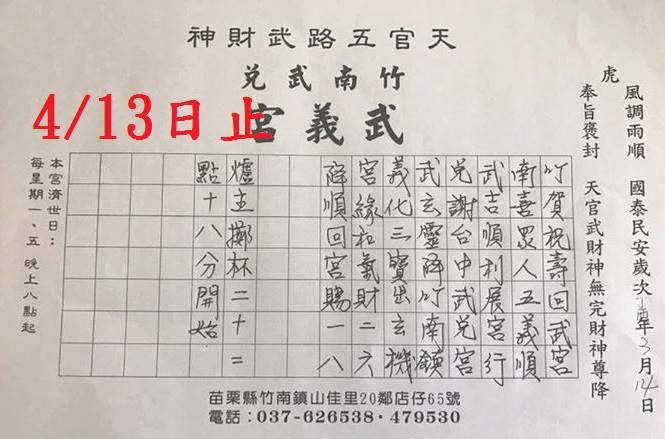 天官五路武財神
竹南武兌
武義宮
4/13日止
風調雨順 國泰民安歲次丁酉年3月14日
虎
奉旨褒封 天官武財神無完財神尊降
竹賀祝壽回武宮
南喜眾人五義順
武吉順利展宮行
兌謝台中武兌宮
武玄靈降竹南鎮
義化三寶出玄機
宮緣和氣財二六
降順回宮賜一八
爐主擲杯二十二
點十八分開始
本宮濟世日：
每星期一、五 晚上八點起
苗栗縣竹南鎮山佳里20鄰店仔65號
電話：037-626538·479530